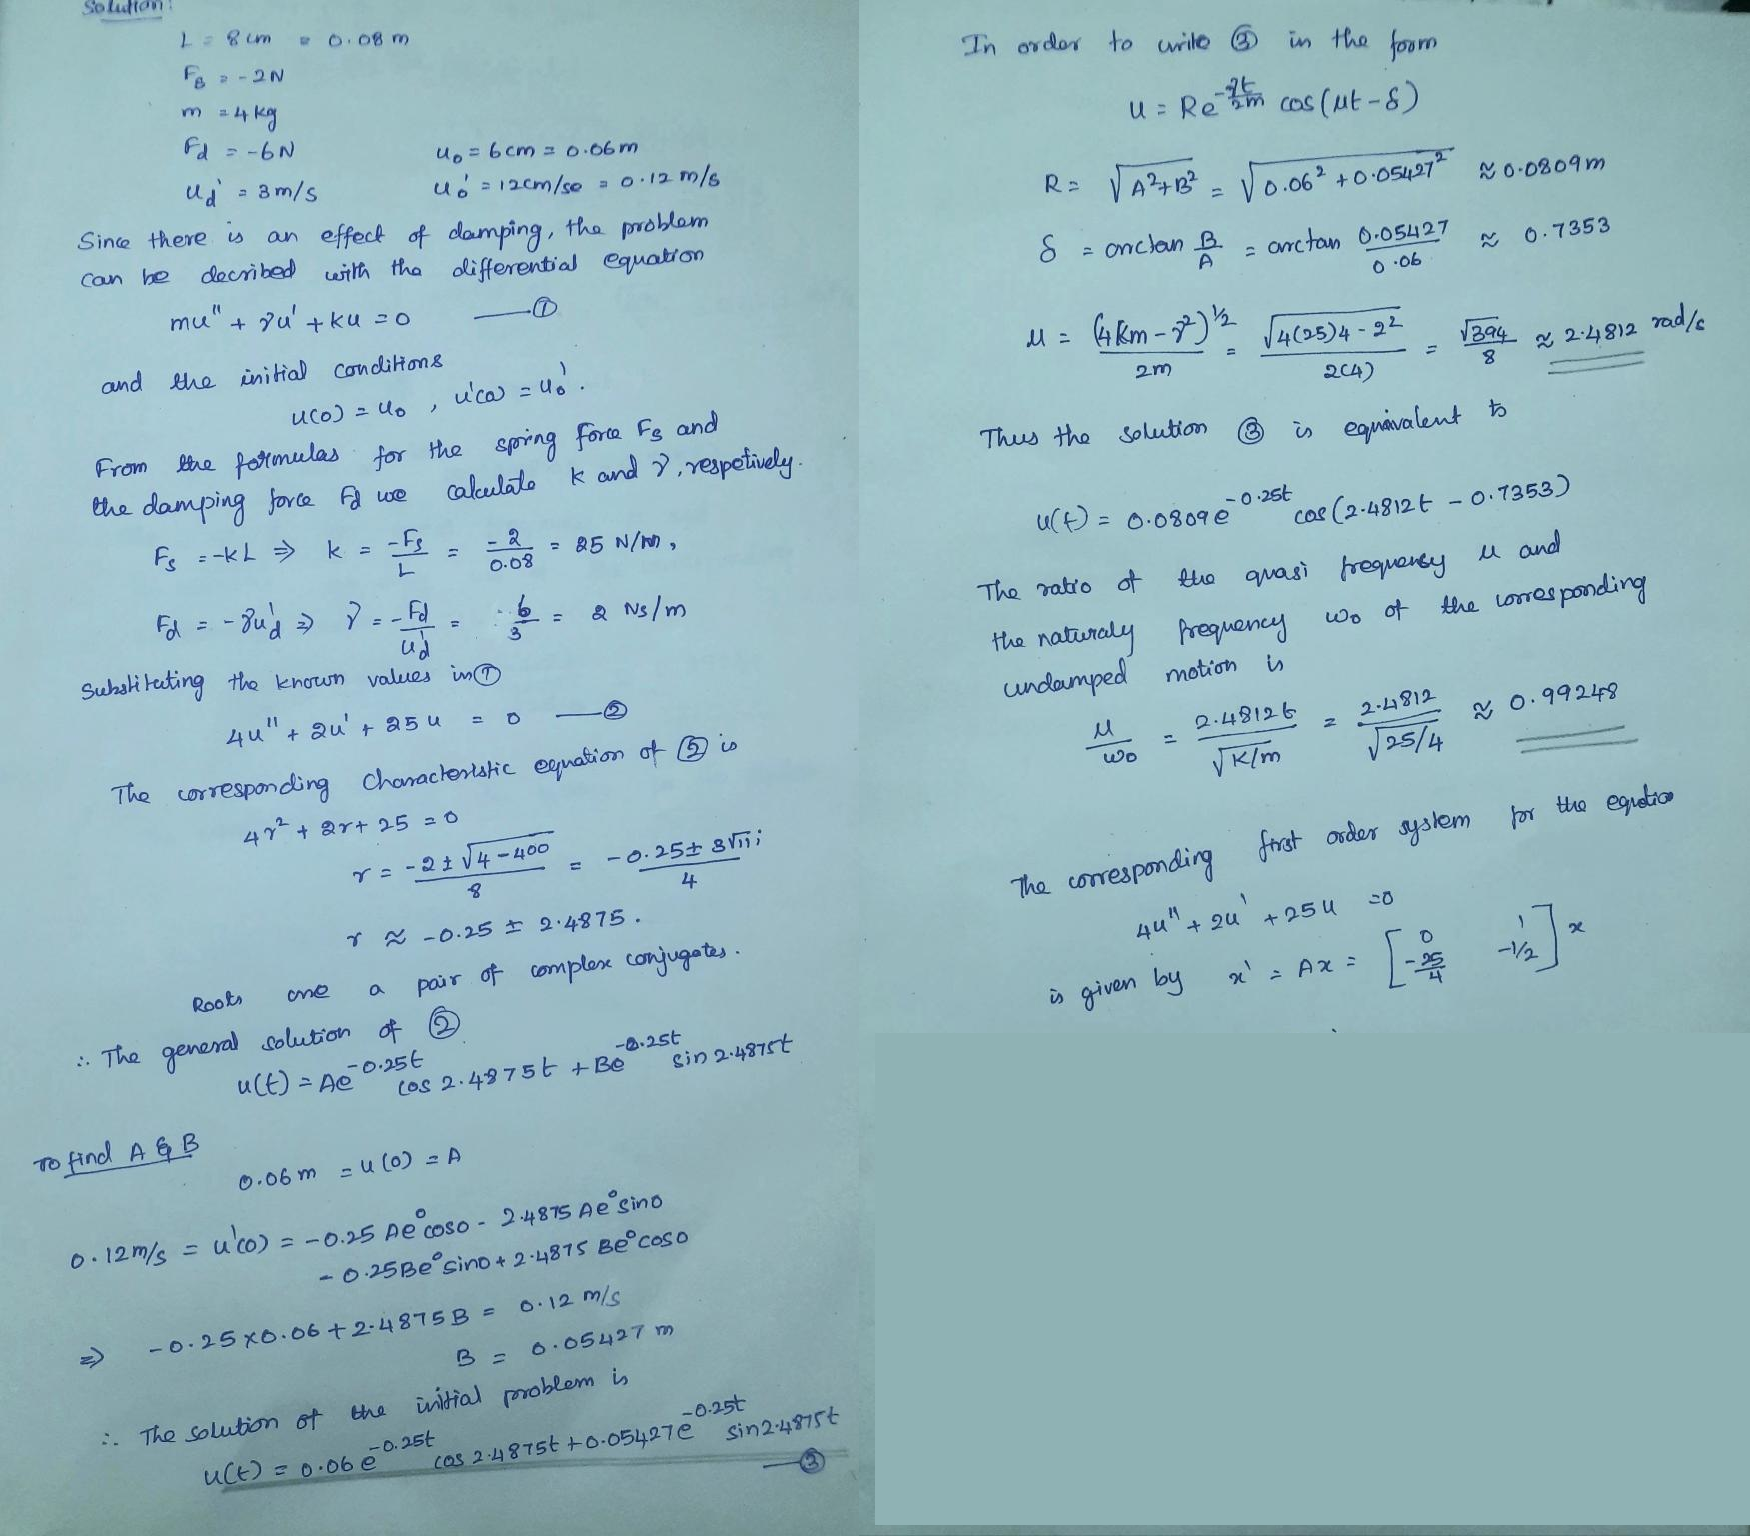 Solution:
L = 8 cm = 0.08 m
Fs = -2N
m = 4 kg
Fd = -6N u₀ = 6cm = 0.06m
ud' = 3 m/s u₀' = 12cm/se = 0.12 m/s
Since there is an effect of damping, the problem
can be decribed with the differential equation
mu'' + γu' + ku = 0 —①
and the initial conditions
u(0) = u₀ , u'(0) = u₀'.
From the formulas for the spring force Fs and
the damping force Fd we calculate k and γ, respetively.
Fs = -kL ⇒ k = -Fs/L = -2/0.08 = 25 N/m,
Fd = -γud' ⇒ γ = -Fd/ud' = 6/3 = 2 Ns/m
Substituting the known values in ①
4u'' + 2u' + 25u = 0 —②
The corresponding Characteristic equation of ② is
4r² + 2r + 25 = 0
r = -2 ± √4-400 / 8 = -0.25 ± 3√11 i / 4
r ≈ -0.25 ± 2.4875.
Roots are a pair of complex conjugates.
∴ The general solution of ②
u(t) = Ae^-0.25t cos 2.4875t + Be^-0.25t sin 2.4875t
To find A & B
0.06 m = u(0) = A
0.12m/s = u'(0) = -0.25 Ae° cos0 - 2.4875 Ae° sin0
- 0.25Be° sin0 + 2.4875 Be° cos0
⇒ -0.25 x 0.06 + 2.4875B = 0.12 m/s
B = 0.05427 m
∴ The solution of the initial problem is
u(t) = 0.06 e^-0.25t cos 2.4875t + 0.05427 e^-0.25t sin 2.4875t
—③
In order to write ③ in the form
u = Re^-γt/2m cos(μt - δ)
R = √A²+B² = √0.06² + 0.05427² ≈ 0.0809m
δ = arctan B/A = arctan 0.05427/0.06 ≈ 0.7353
μ = (4km - γ²)^1/2 / 2m = √4(25)4 - 2² / 2(4) = √394 / 8 ≈ 2.4812 rad/s
Thus the solution ③ is equivalent to
u(t) = 0.0809 e^-0.25t cos(2.4812t - 0.7353)
The ratio of the quasi frequency μ and
the naturaly frequency ω₀ of the corresponding
undamped motion is
μ/ω₀ = 2.48126/√k/m = 2.4812/√25/4 ≈ 0.99248
The corresponding first order system for the equation
4u'' + 2u' + 25u = 0
is given by x' = Ax = [0 1 -25/4 -1/2] x